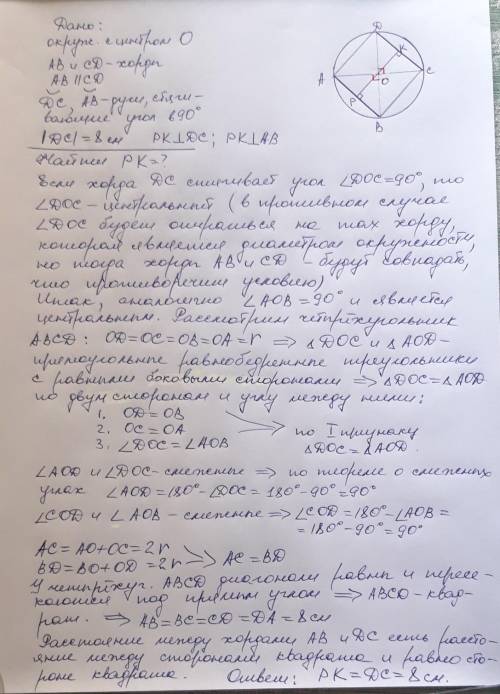 Дано:
окруж. с центром O
AB и CD - хорды
AB || CD
DC, AB - дуги, стяги-
вающие угол в 90°
|DC| = 8 см   PK⊥DC; PK⊥AB
Найти PK = ?
D
K
A
O
C
P
B
Если хорда DC стягивает угол ∠DOC=90°, то
∠DOC - центральный (в противном случае
∠DOC будет опираться на такую хорду,
которая является диаметром окружности,
но тогда хорды AB и CD будут совпадать,
что противоречит условию)
Итак, аналогично ∠AOB = 90° и является
центральным. Рассмотрим четырёхугольник
ABCD: OD=OC=OB=OA=r ⇒ ΔDOC и ΔAOD-
прямоугольные равнобедренные треугольники
с равными боковыми сторонами ⇒ ΔDOC=ΔAOD
по двум сторонам и углу между ними:
1. OD=OB
2. OC=OA
3. ∠DOC=∠AOB
по I признаку
ΔDOC=ΔAOD.
∠AOD и ∠DOC - смежные ⇒ по теореме о смежных
углах ∠AOD=180°-∠DOC=180°-90°=90°
∠COD и ∠AOB - смежные ⇒ ∠COD=180°-∠AOB=
=180°-90°=90°
AC=AO+OC=2r
BD=BO+OD=2r
AC=BD
У четырёхуг. ABCD диагонали равны и пересе-
каются под прямым углом ⇒ ABCD-квад-
рат. ⇒ AB=BC=CD=DA=8 см
Расстояние между хордами AB и DC есть рассто-
яние между сторонами квадрата и равно сто-
роне квадрата.   Ответ: PK=DC=8 см.